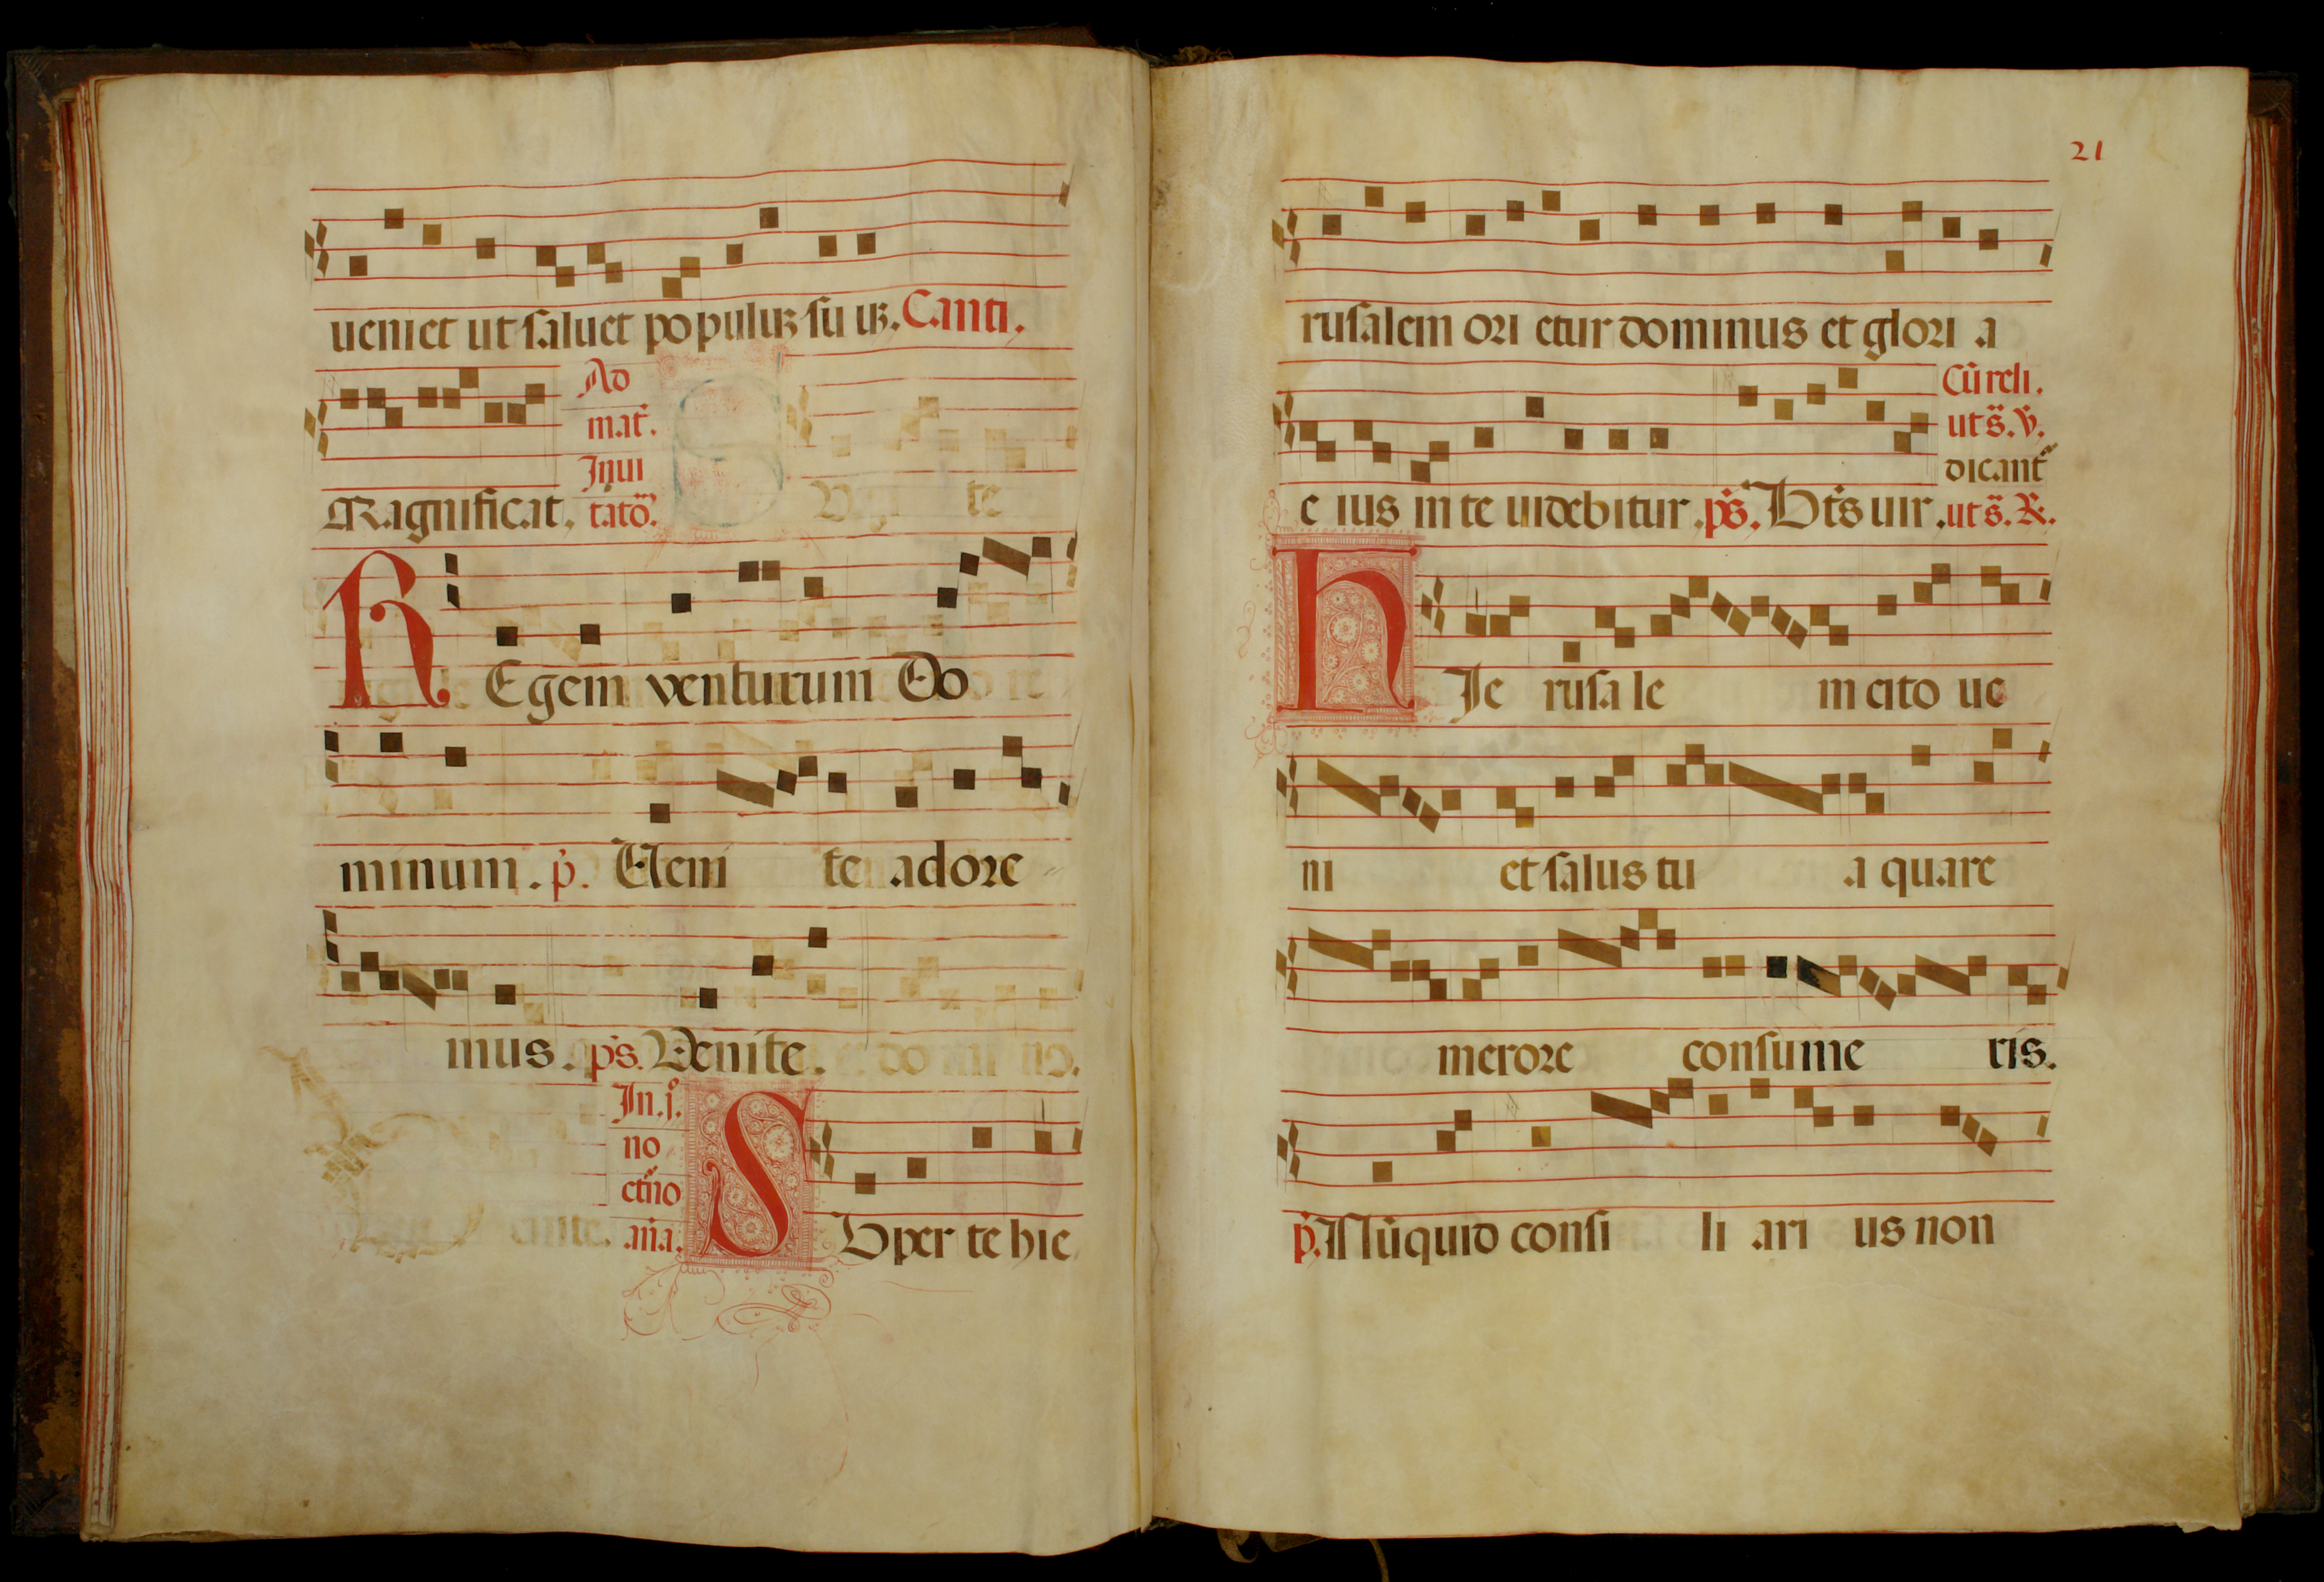 ueniet ut saluet populuꝫ suuꝫ. Canti.
Ad
mat̃.
Inui
Magnificat, tato᷒.
REgem venturum Do
minum. p̃. Ueni te adore
mus. ps̃. Venite.
In.j.º
no
ctño
añа. SUper te hie
21
rusalem ori etur dominus et glori a
Cũ reli.
ut s̃. ꝟ.
dicant̃
e ius in te uidebitur. ps̃. Bt̃s uir. ut s̃. ℟.
HIe rusale m cito ue
ni et salus tu a quare
merore consume ris.
p̃. Nũquid consi li ari us non